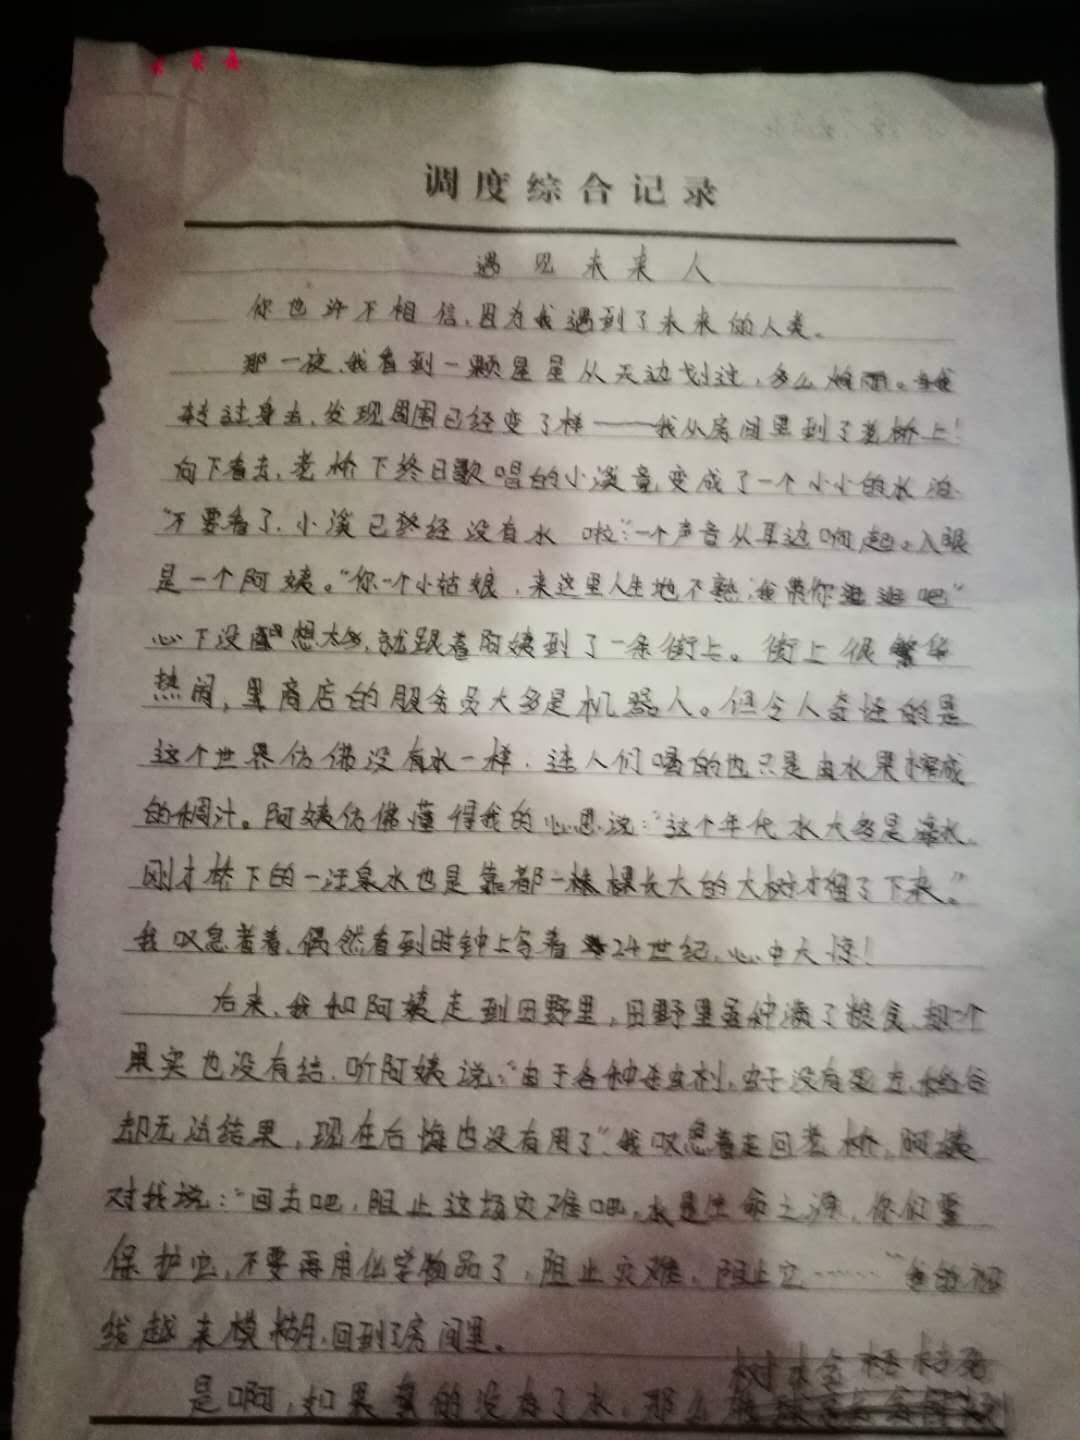 调度综合记录
遇见未来人
你也许不相信,因为我遇到了未来的人类。
那一夜,我看到一颗星星从天边划过,多么
转过身去,发现周围已经变了样——我从房间里到了老桥上!
向下看去,老桥下终日歌唱的小溪竟变成了一个小小的水泊.
“不要看了,小溪已经没有水 啦”一个声音从耳边响起。入眼
是一个阿姨。“你一个小姑娘,来这里人生地不熟,我带你逛逛吧”
心下没想太多,就跟着阿姨到了一条街上。街上很繁华
热闹,里商店的服务员大多是机器人。但令人奇怪的是
这个世界仿佛没有水一样,连人们喝的也只是由水果榨成
的稠汁。阿姨仿佛懂得我的心思说:“这个年代水大多是
刚才桥下的一汪泉水也是靠都一棵长大的大树才留了下来。”
我叹息着着,偶然看到时钟上写着24世纪,心中大惊!
后来,我和阿姨走到田野里,田野里虽种满了粮食,却一个
果实也没有结,听阿姨说:“由于各种杀虫剂,虫子没有
却无法结果,现在后悔也没有用了”我叹息着走回老桥,阿姨
对我说:“回去吧,阻止这场灾难吧,水是生命之源,你们要
保护它,不要再度化学物品了,阻止灾难,阻止它……”我的视
线越来模糊,回到了房间里。
树木会枯
是啊,如果真的没有了水,那么